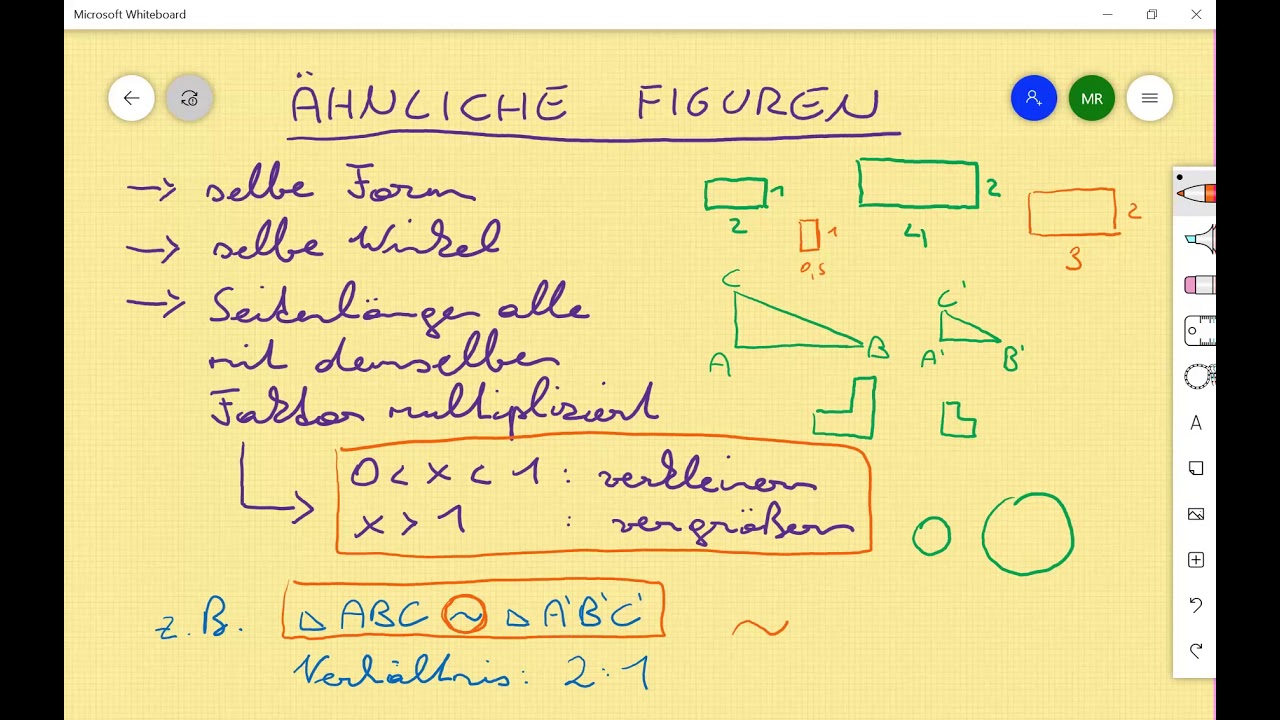 Microsoft Whiteboard
MR
ÄHNLICHE FIGUREN
→ selbe Form
→ selbe Winkel
→ Seitenlängen alle
mit demselben
Faktor multipliziert
0 < x < 1 : verkleinern
x > 1 : vergrößern
z.B. △ ABC ~ △ A'B'C'
Verhältnis: 2:1
1
2
2
4
1
0,5
2
3
C
A
B
C'
A'
B'
~
A